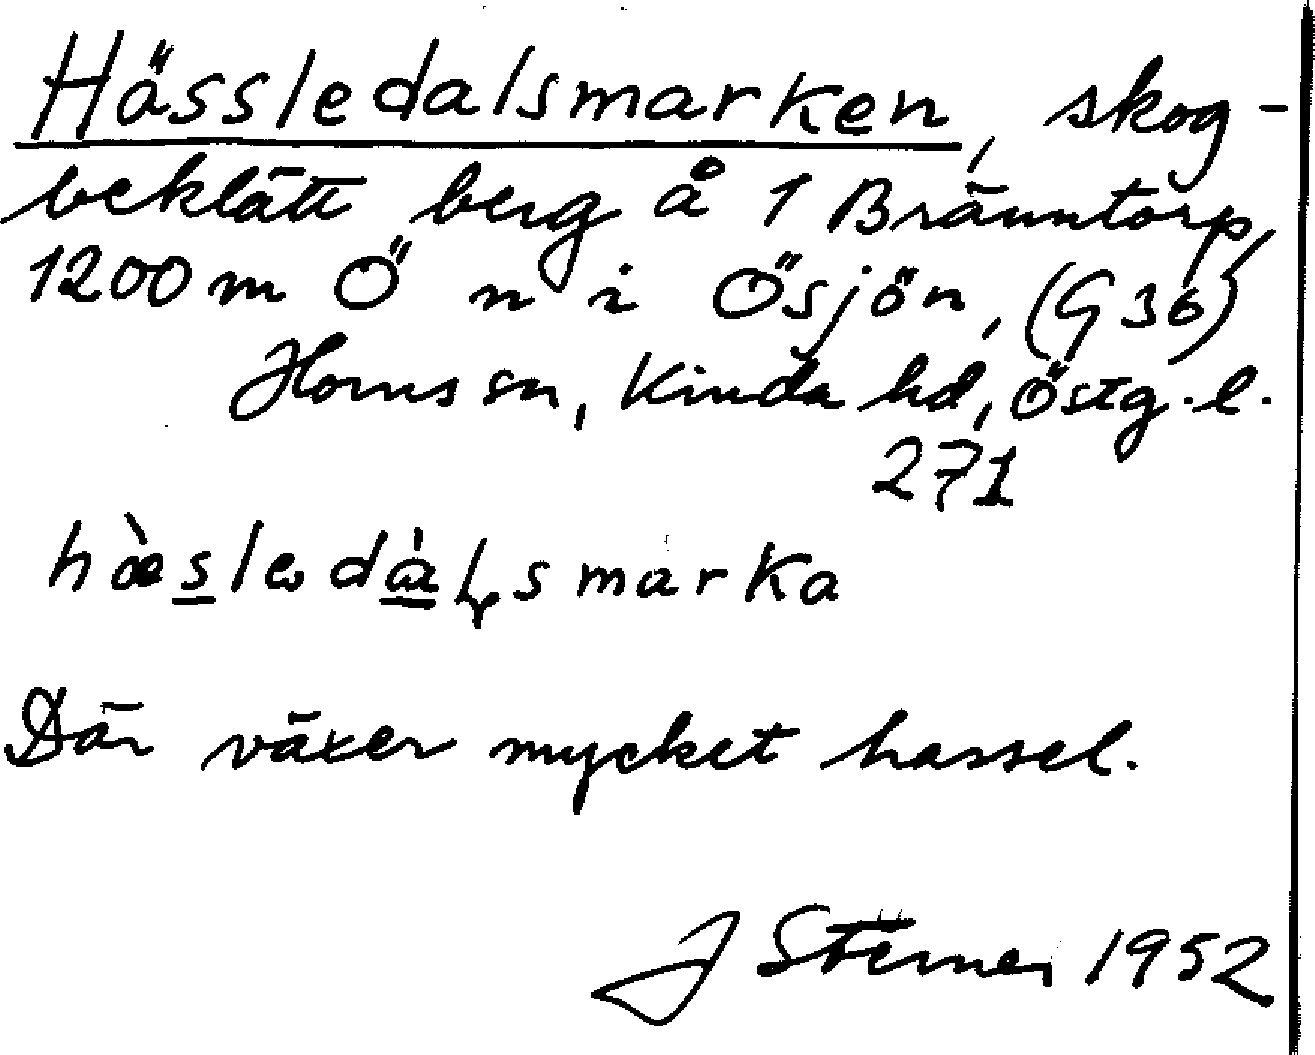 Hässledalsmarken, skog-
beklätt berg å 1 Bränntorp,
1200 m Ö n i Ösjön, (G 36)
Horns sn, Kinda hd, Östg. l.
271
hæ̀sledálsmarka
Där växer mycket hassel.
J 1952